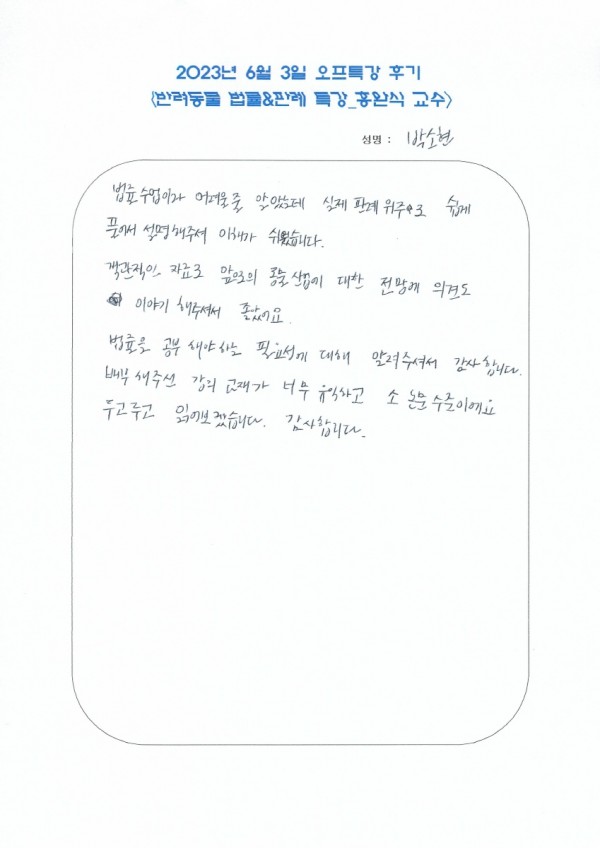 2023년 6월 3일 오프특강 후기
<반려동물 법률&판례 특강_홍완식 교수>
성명 : 박소현
법률 수업이라 어려울줄 알았는데 실제 판례 위주로 쉽게
풀어서 설명해주셔 이해가 쉬웠습니다.
객관적인 자료로 앞으로의 동물 산업에 대한 전망에 의견도
이야기 해주셔서 좋았어요.
법률을 공부 해야하는 필요성에 대해 알려주셔서 감사합니다.
배부 해주신 강의 교재가 너무 유익하고 소 논문 수준이에요
두고두고 읽어보겠습니다. 감사합니다.